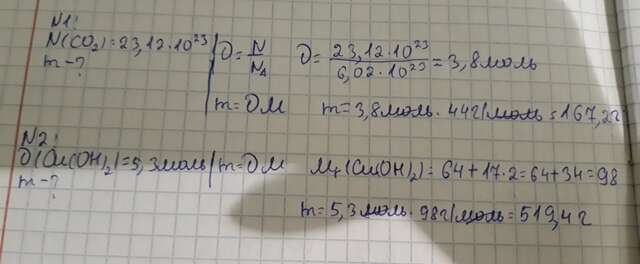 N1:
N(CO₂)=23,12·10²³
m-?
ϑ=N/Nₐ ϑ=23,12·10²³/6,02·10²³=3,8моль
m=ϑM m=3,8моль·44г/моль=167,2г
N2:
ϑ(Cu(OH)₂)=5,3моль
m-?
m=ϑM Mr(Cu(OH)₂)=64+17·2=64+34=98
m=5,3моль·98г/моль=519,4г